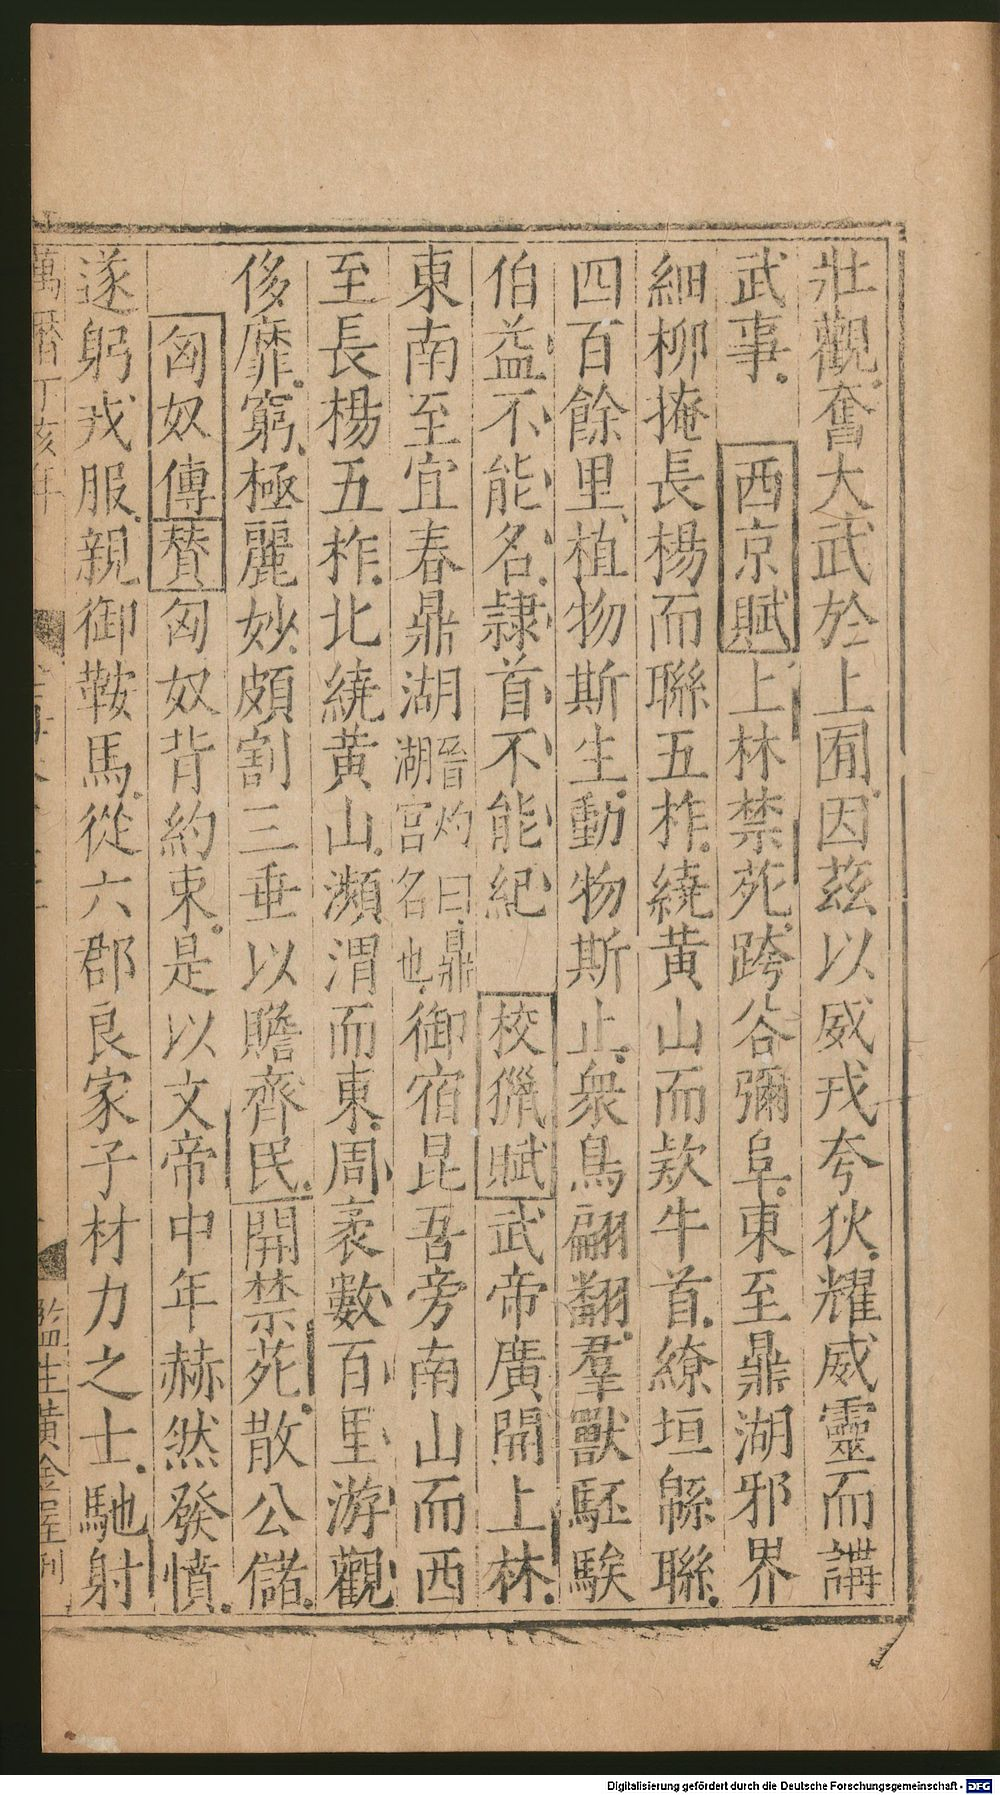 壯觀奮大武於上囿因茲以威戎夸狄耀威靈而講
武事 西京賦 上林禁苑跨谷彌阜東至鼎湖邪界
細柳掩長楊而聯五柞繞黃山而欵牛首繚垣緜聯
四百餘里植物斯生動物斯止衆鳥翩翻羣獸駓騃
伯益不能名隷首不能紀 校獵賦 武帝廣開上林
東南至宜春鼎湖晉灼曰鼎湖宮名也御宿昆吾旁南山而西
至長楊五柞北繞黃山瀕渭而東周袤數百里游觀
侈靡窮極麗妙頗割三垂以贍齊民開禁苑散公儲
匈奴傳贊 匈奴背約束是以文帝中年赫然發憤
遂躬戎服親御鞍馬從六郡良家子材力之士馳射
萬曆丁亥年
監生黃金庭刊
Digitalisierung gefördert durch die Deutsche Forschungsgemeinschaft - DFG